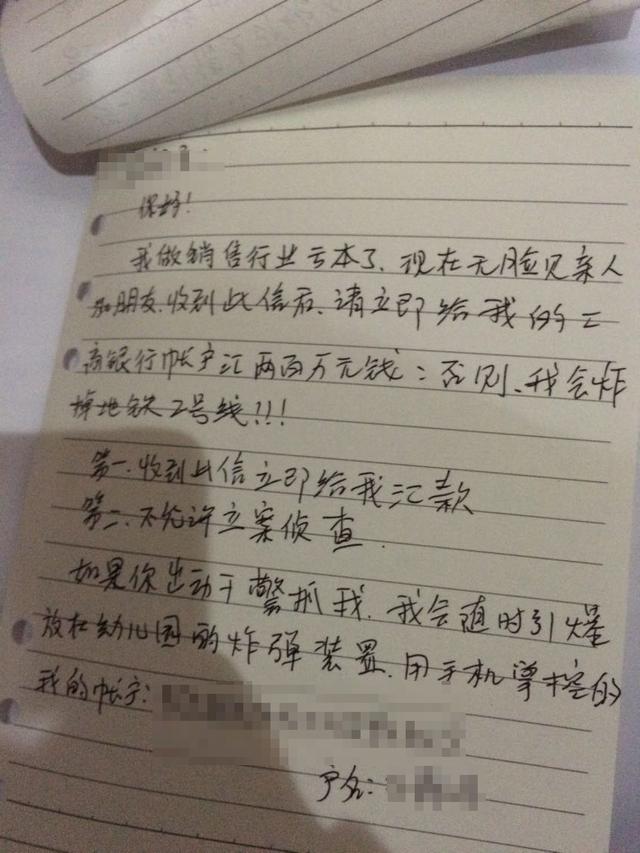 你好!
我做销售行业亏本了、现在无脸见亲人
和朋友.收到此信后、请立即给我的工
商银行帐户汇两百万元钱:否则、我会炸
掉地铁2号线!!!
第一.收到此信立即给我汇款
第二.不允许立案侦查.
如果你出动干警抓我.我会随时引爆
放在幼儿园的炸弹装置.用手机掌控的
我的帐户:
户名: